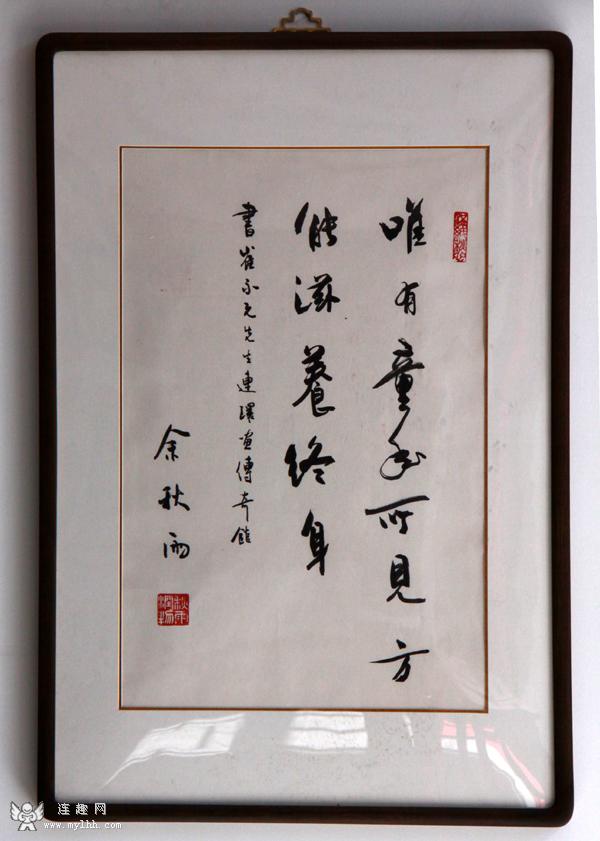 唯有童年所見方
能滋養終身
書崔永元先生連環画傳奇館
余秋雨
连趣网
www.mylhh.com